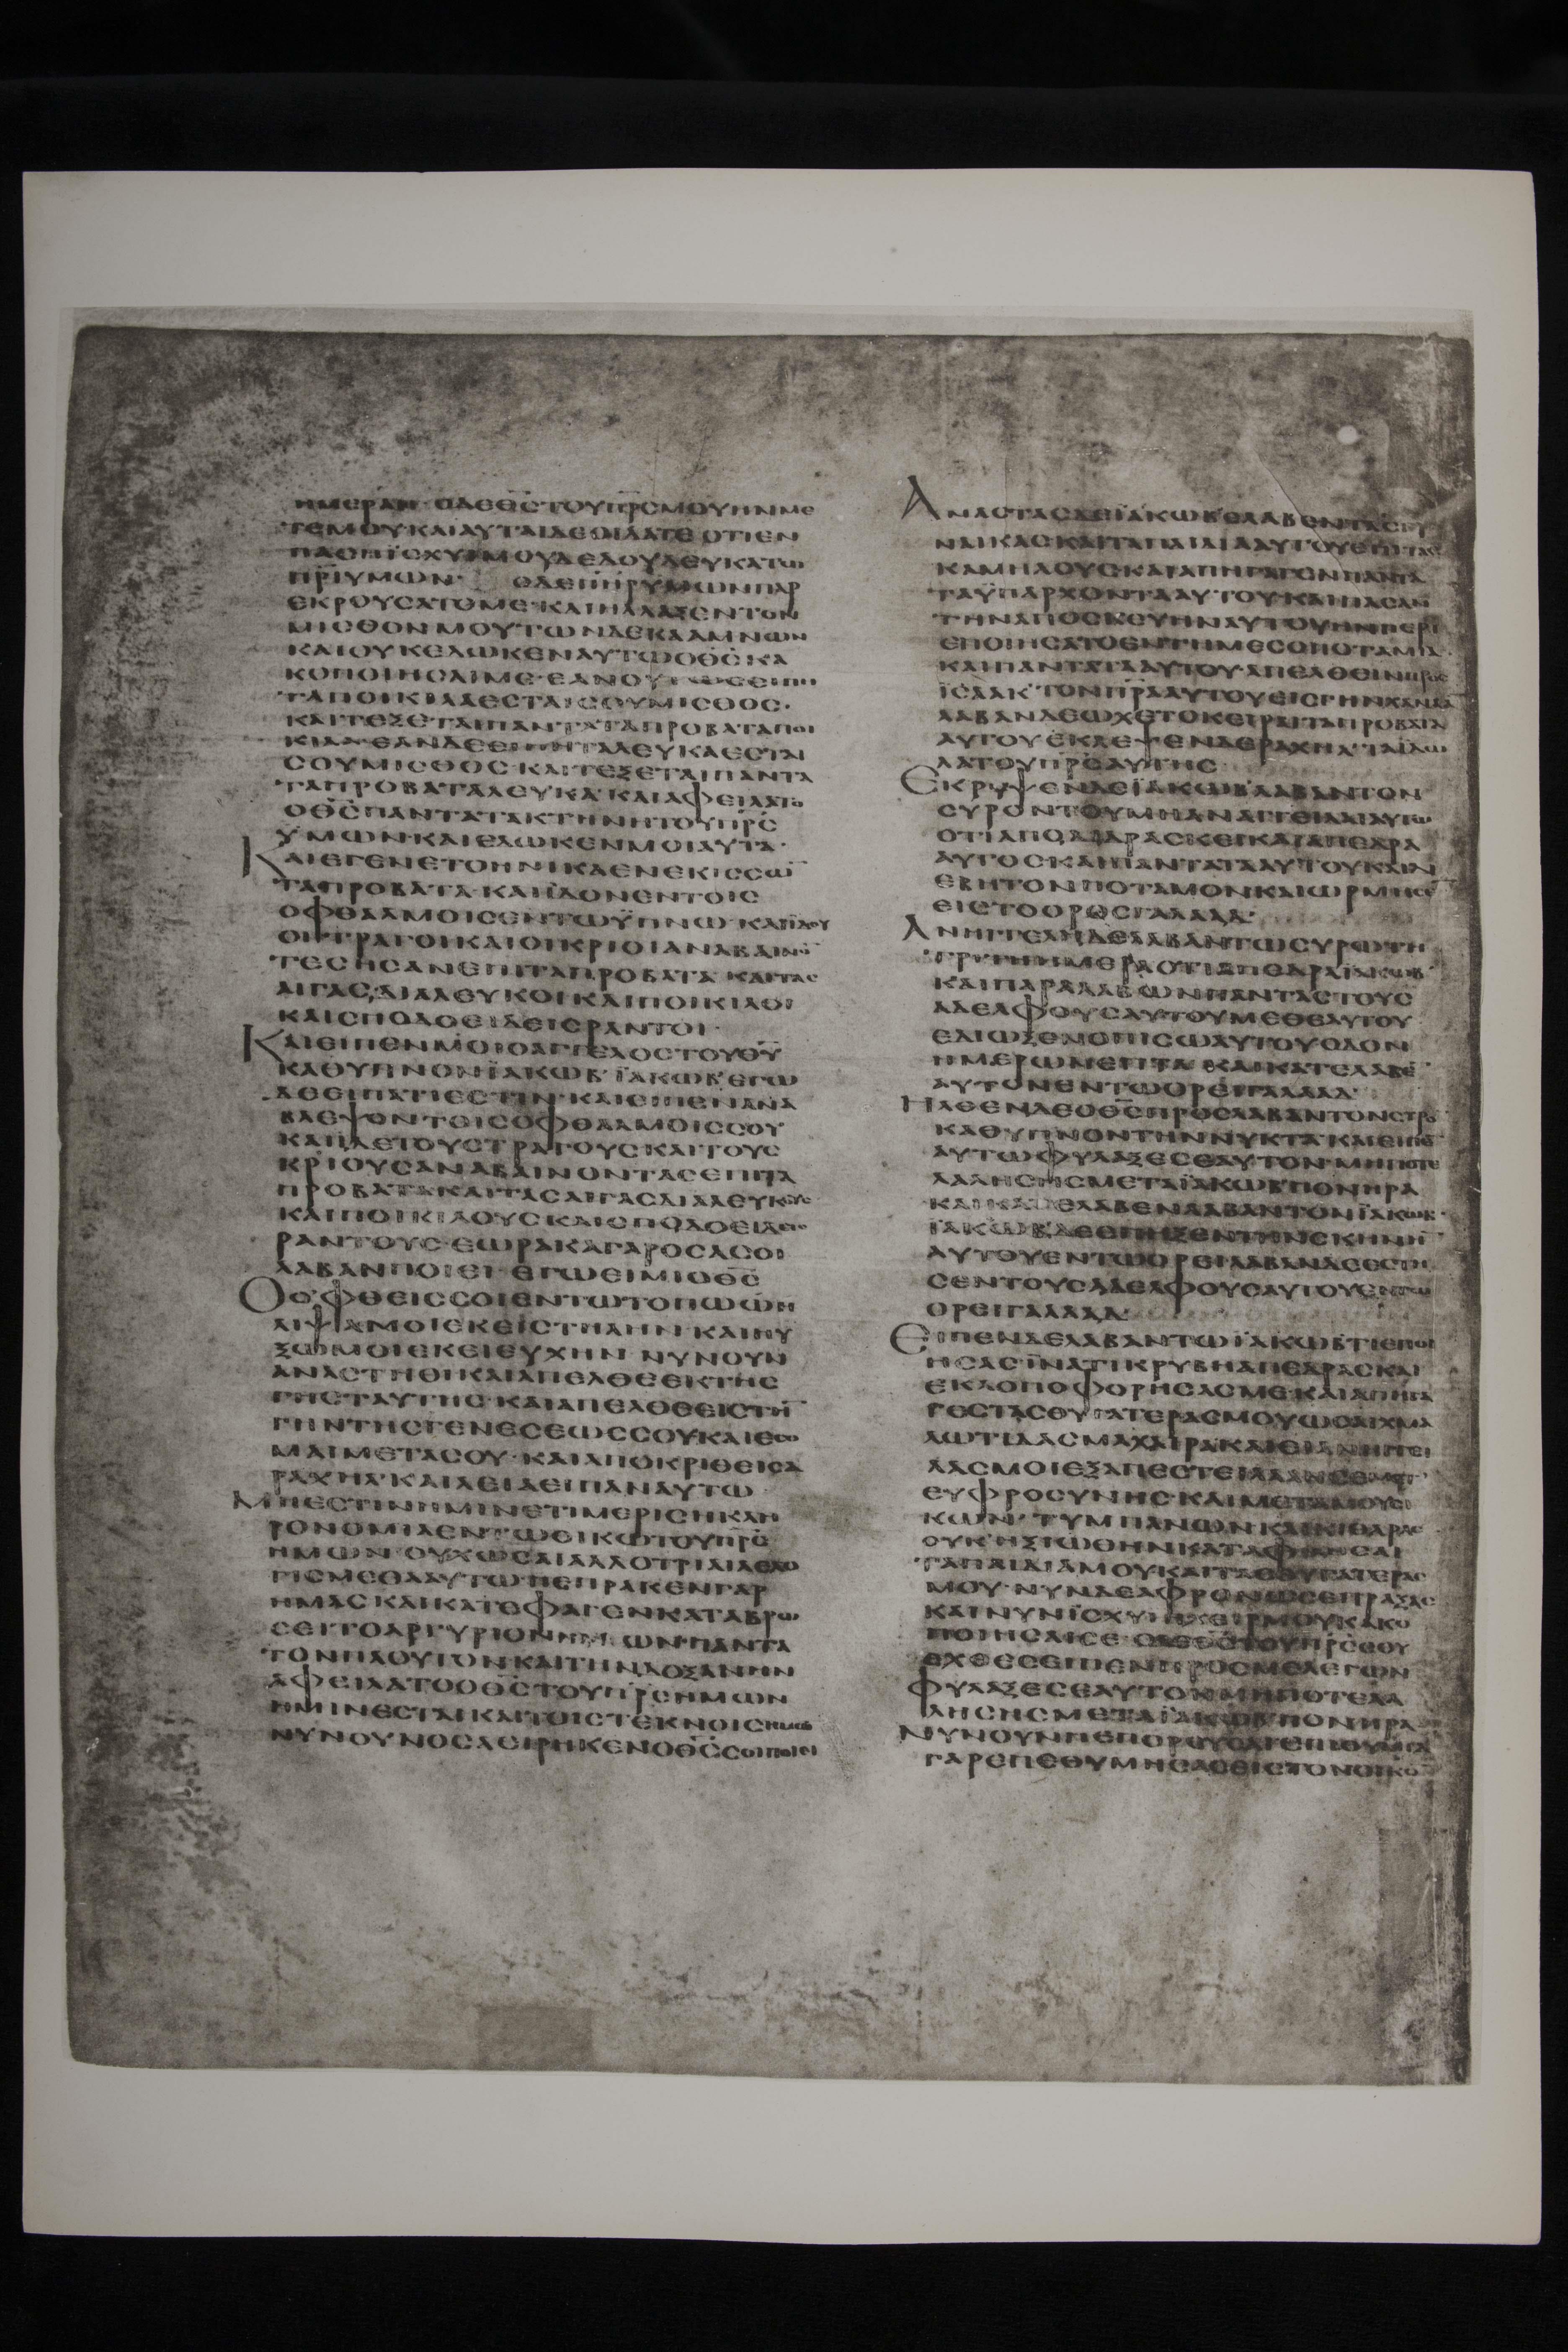 ημεραν· οδεθ̅ς̅τουπ̅ρ̅ς̅μουηνμε
τεμουκαιαυταιδεοιδατεοτιεν
πασηϊσχυϊμουδεδουλευκατω
π̅ρ̅ιυμων· οδεπ̅η̅ρ̅υμωνπαρ
εκρουσατομε·καιηλλαξεντον
μισθονμουτωνδεκααμνων
καιουκεδωκεναυτωοθ̅ς̅κα
κοποιησαιμε·εανου
ταποικιλαεσταισουμισθος·
καιτεξεταιπανταταπροβαταποι
κιλα·εανδεειπηταλευκαεσται
σουμισθοςκαιτεξεταιπαντα
ταπροβαταλευκα·καιαφειλατο
οθ̅ς̅παντατακτηνητουπ̅ρ̅ς̅
ϋμωνκαιεδωκενμοιαυτα·
Καιεγενετοηνικαενεκισσω̅
ταπροβατα·καιϊδονεντοις
οφθαλμοισεντωϋπνω·καιϊδου
οιτραγοικαιοικριοιαναβαινο̅
τεσησανεπιταπροβατα·καιτας
αιγας,διαλευκοικαιποικιλοι
καισποδοειδεισραντοι·
Καιειπενμοιοαγγελοστουθ̅υ̅
καθυπνονϊακωβ·ϊακωβ·εγω
δεειπατιεστιν·καιειπενανα
βλεψοντοισοφθαλμοισσου
καιϊδετουστραγουσκαιτους
κριουσαναβαινοντασεπιτα
προβατακαιτασαιγασδιαλευκους
καιποικιλουσκαισποδοειδεις
ραντους·εωρακαγαροσασοι
λαβανποιει·εγωειμιοθ̅ς̅
Οοφθεισσοιεντωτοπωων
λιψαμοιεκειστηλην·καιηυ
ξωμοιεκειευχην·νυνουν
αναστηθικαιαπελθεεκτης
γησταυτης·καιαπελθεειστη̅
γηντησγενεσεωςσουκαιεσο
μαιμετασου·καιαποκριθεισα
ραχηλ·καιλειαειπαναυτω·
Μηεστινημινετιμερισηκλη
ρονομιαεντωοικωτουπ̅ρ̅ς̅
ημων·ουχωσαιαλλοτριαιλελο
γισμεθααυτωπεπρακενγαρ
ημασκαικατεφαγενκαταβρω
σειτοαργυριονημων·παντα
τονπλουτονκαιτηνδοξανην
αφειλατοοθ̅ς̅τουπ̅ρ̅ς̅ημων
ημινεσταικαιτοιστεκνοισημων
νυνουνοσαειρηκενοθ̅ς̅σοιποιει
Αναστασδεϊακωβελαβεντασγυ
ναικασκαιταπαιδιααυτουεπιτας
καμηλουσκαιαπηγαγενπαντα
ταϋπαρχοντααυτουκαιπασαν
τηναποσκευηναυτουηνπερι
εποιησατοεντημεσοποταμια·
καιπαντατααυτου·απελθεινπρος
ϊσαακ·τονπ̅ρ̅ααυτουεισγηνχανααν
λαβανδεωχετοκειραιταπροβατα
αυτουεκλεψενδεραχηλταειδω
λατουπ̅ρ̅ς̅αυτης·
Εκρυψενδεϊακωβλαβαντον
συροντουμηαναγγειλαιαυτω
οτιαποδιδρασκεικαιαπεδρα
αυτοσκαιπαντατααυτουκαιδι
εβητονποταμονκαιωρμησε̅
ειστοοροσγαλααδ·
Ανηγγεληδελαβαντωσυρωτη
τριτηημεραοτιαπεδραϊακωβ
καιπαραλαβωνπαντατους
αδελφουσαυτουμεθεαυτου
εδιωξενοπισωαυτουοδον
ημερωνεπτα·καικατελαβε̅
αυτονεντωορειγαλααδ·
Ηλθενδεοθ̅ς̅προσλαβαντονσυρο̅
καθυπνοντηννυκτακαιειπε̅
αυτωφυλαξεσεαυτον·μηποτε
λαλησησμεταϊακωβπονηρα
καικατελαβενλαβαντονϊακωβ·
ϊακωβδεεπηξεντηνσκηνη̅
αυτουεντωορειλαβανδεεστη
σεντουσαδελφουσαυτουεντω
ορειγαλααδ·
Ειπενδελαβαντωϊακωβτιεποι
ησασϊνατικρυβηαπεδρασκαι
εκλοποφορησασμε·καιαπηγα
γεστασθυγατερασμουωσαιχμα
λωτιδασμαχαιρακαιειανηγγει
λασμοιεξαπεστειλαανσεμετ
ευφροσυνης·καιμεταμουσι
κων·τυμπανωνκαικιθαρας
ουκηξιωθηνκαταφιλησαι
ταπαιδιαμουκαιταςθυγατερας
μου·νυνδεαφρονωσεπραξας
καινυνϊσχυειηχειρμουκακο
ποιησαισε·οδεθ̅ς̅τουπ̅ρ̅ς̅σου
εχθεςειπενπροσμελεγων
φυλαξεσεαυτονμηποτελα
λησησμεταϊακωβπονηρα
Νυνουνπεπορευσαιεπιθυμια
γαρεπεθυμησασειστονοικο̅